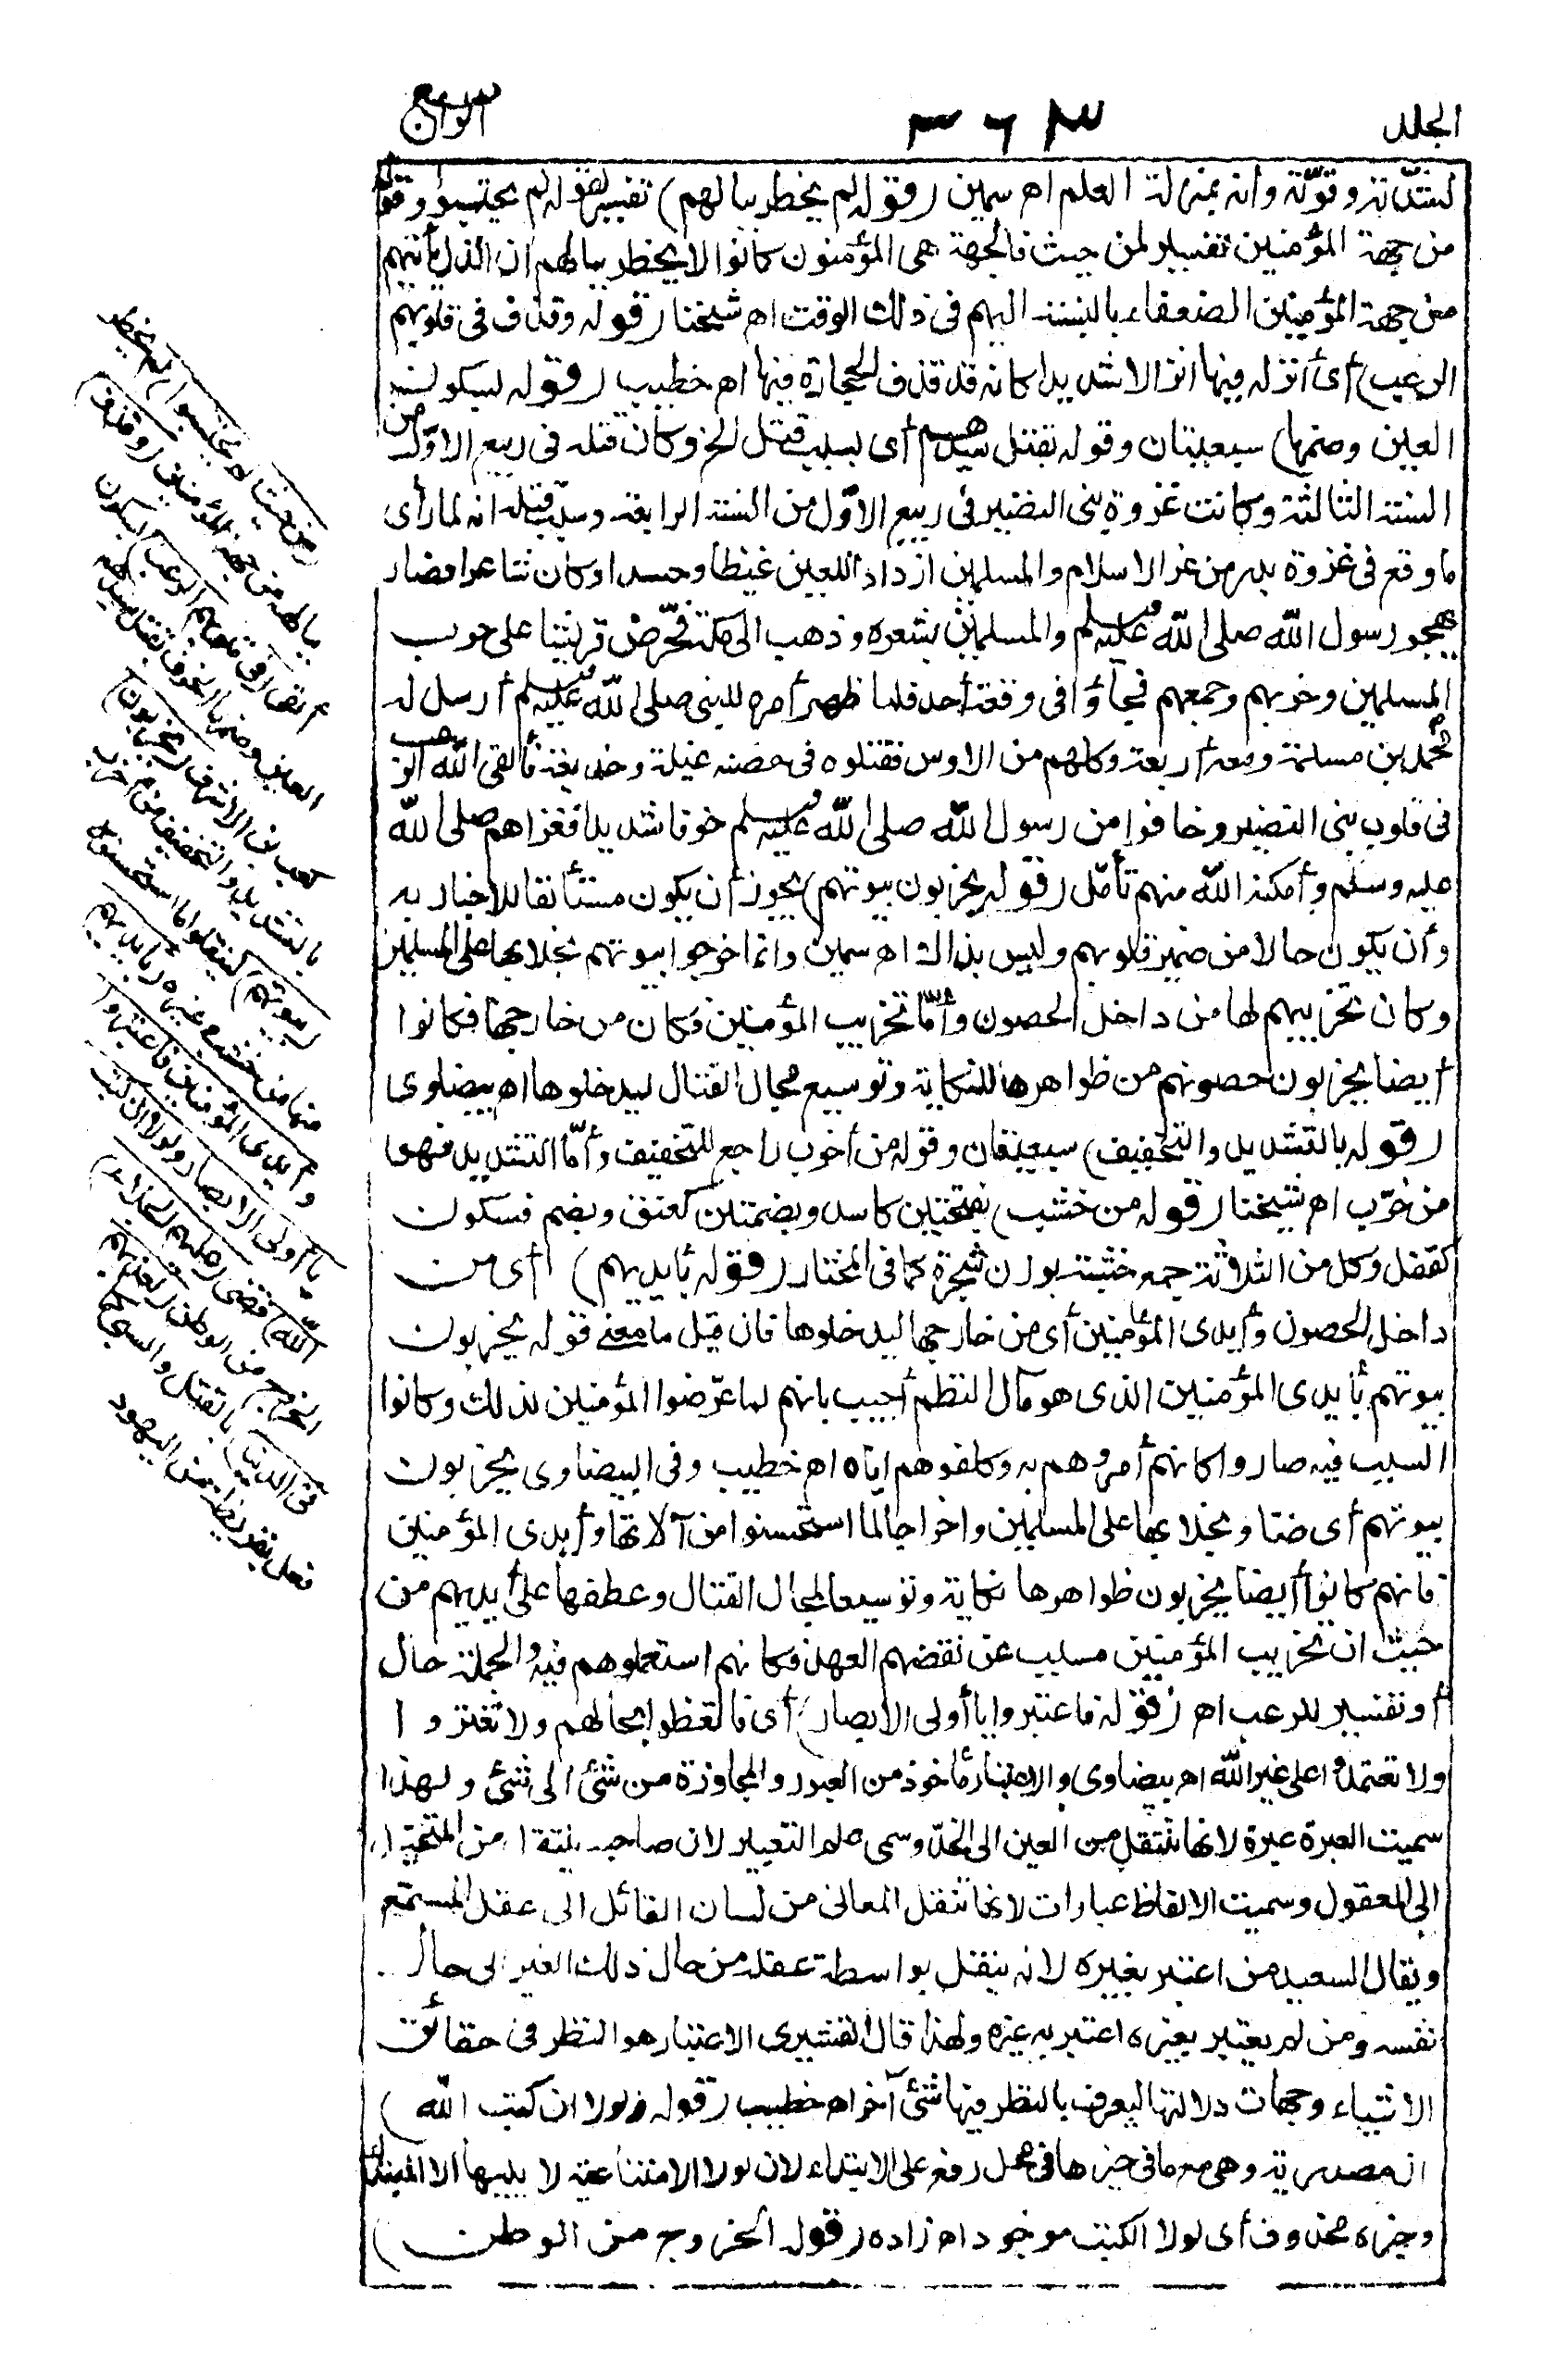 الجلد
٣٦٣
الرابع
لشدّته وقوّته وانه بمنزلة العلم اه سمين (قوله لم يخطر ببالهم) تفسير لقوله لم يحتسبوا وقوله
من جهة المؤمنين تفسير لمن حيث فالجهة هى المؤمنون كانوا لا يخطر ببالهم ان الذل يأتيهم
من جهة المؤمنين الضعفاء بالنسبة اليهم فى ذلك الوقت اه شيخنا (قوله وقذف فى قلوبهم
الرعب) أى أنزله فيها انزالا شديدا كانه قد قذف الحجارة فيها اه خطيب (قوله بسكون
العين وضمها) سبعيتان وقوله بقتل سيدهم أى بسبب قتل الخ وكان قتله فى ربيع الاوّل من
السنة الثالثة وكانت غزوة بنى النضير فى ربيع الاوّل من السنة الرابعة وسبب قتله انه لما رأى
ما وقع فى غزوة بدر من عز الاسلام والمسلمين ازداد اللعين غيظا وحسدا وكان شاعرا فصار
يهجو رسول الله صلى الله عليه وسلم والمسلمين بشعره وذهب الى مكة فحرّض قريشا على حرب
المسلمين وخربهم وجمعهم فجاؤا فى وقعة أحد فلما ظهر أمره للنبى صلى الله عليه وسلم أرسل له
محمد بن مسلمة ومعه أربعة وكلهم من الاوس فقتلوه فى حصنه غيلة وخديعة فألقى الله الرعب
فى قلوب بنى النضير وخافوا من رسول الله صلى الله عليه وسلم خوفا شديدا فغزاهم صلى الله
عليه وسلم وأمكنه الله منهم تأمّل (قوله يخربون بيوتهم) يجوز أن يكون مستأنفا للاخبار به
وأن يكون حالا من ضمير قلوبهم وليس بذاك اه سمين وانما اخرجوا بيوتهم بخلا بها على المسلمين
وكان تخريبهم لها من داخل الحصون وأمّا تخريب المؤمنين فكان من خارجها فكانوا
أيضا يخربون حصونهم من ظواهرها للنكاية وتوسيع مجال القتال ليدخلوها اه بيضاوى
(قوله بالتشديد والتخفيف) سبعيتان وقوله من أخرب راجع للتخفيف وأمّا التشديد فهو
من خرّب اه شيخنا (قوله من خشب) بفتحتين كاسد وبضمتين كعنق وبضم فسكون
كقفل وكل من الثلاثة جمع خشبة بوزن شجرة كما فى المختار (قوله بأيديهم) أى من
داخل الحصون وأيدى المؤمنين أى من خارجها ليدخلوها فان قيل ما معنى قوله يخربون
بيوتهم بأيدى المؤمنين الذى هو مآل النظم أجيب بانهم لما عرّضوا المؤمنين لذلك وكانوا
السبب فيه صاروا كانهم أمروهم به وكلفوهم اياه اه خطيب وفى البيضاوى يخربون
بيوتهم أى ضنا وبخلا بها على المسلمين واخراجا لما استحسنوا من آلاتها وأيدى المؤمنين
فانهم كانوا أيضا يخربون ظواهرها نكاية وتوسيعا لمجال القتال وعطفها على أيديهم من
حيث ان تخريب المؤمنين مسبب عن نقضهم العهد فكانهم استعملوهم فيه والجملة حال
أو تفسير للرعب اه (قوله فاعتبروا يا أولى الابصار) أى فاتعظوا بحالهم ولا تغتروا
ولا تعتمدوا على غير الله اه بيضاوى والاعتبار مأخوذ من العبور والمجاوزة من شئ الى شئ ولهذا
سميت العبرة عبرة لانها تنتقل من العين الى الخدّ وسمى علم التعبير لان صاحبه ينتقل من المتخيل
الى المعقول وسميت الالفاظ عبارات لانها تنقل المعانى من لسان القائل الى عقل المستمع
ويقال السعيد من اعتبر بغيره لانه ينقل بواسطة عقله من حال ذلك الغير الى حال
نفسه ومن لم يعتبر بغيره اعتبر به غيره ولهذا قال القشيرى الاعتبار هو النظر فى حقائق
الاشياء وجهات دلالتها ليعرف بالنظر فيها شئ آخر اه خطيب (قوله ولولا ان كتب الله)
ان مصدرية وهى مع ما فى حيزها فى محل رفع على الابتداء لان لولا الامتناعية لا يليها الا المبتدأ
وخبره محذوف أى لولا الكتب موجود اه زاده (قوله الخروج من الوطن)
(من حيث لم يحتسبوا) لم يخطر
ببالهم من جهة المؤمنين (وقذف)
ألقى (فى قلوبهم الرعب) بسكون
العين وضمها الخوف بقتل سيدهم
كعب بن الاشرف (يخربون)
بالتشديد والتخفيف من أخرب
(بيوتهم) لينقلوا ما استحسنوه
منها من خشب وغيره (بأيديهم
وأيدى المؤمنين فاعتبروا
يا أولى الابصار ولولا ان كتب
الله) قضى (عليهم الجلاء)
الخروج من الوطن (لعذبهم
فى الدنيا) بالقتل والسبى كما
فعل بقريظة من اليهود